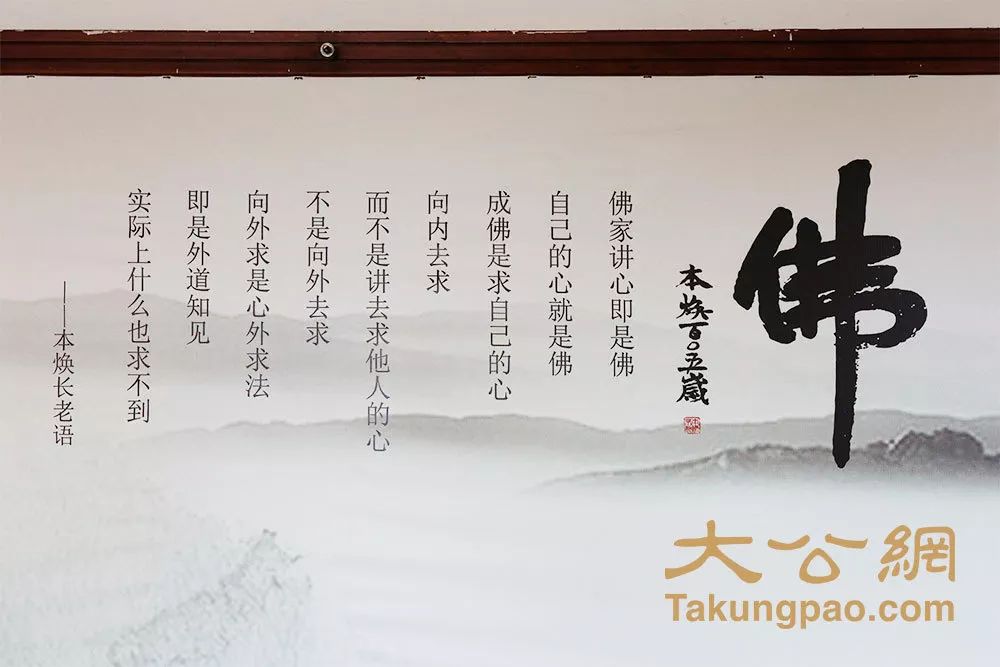 佛
本焕百〇五岁
佛家讲心即是佛
自己的心就是佛
成佛是求自己的心
向内去求
而不是讲去求他人的心
不是向外去求
向外求是心外求法
即是外道知见
实际上什么也求不到
——本焕长老语
大公網
Takungpao.com